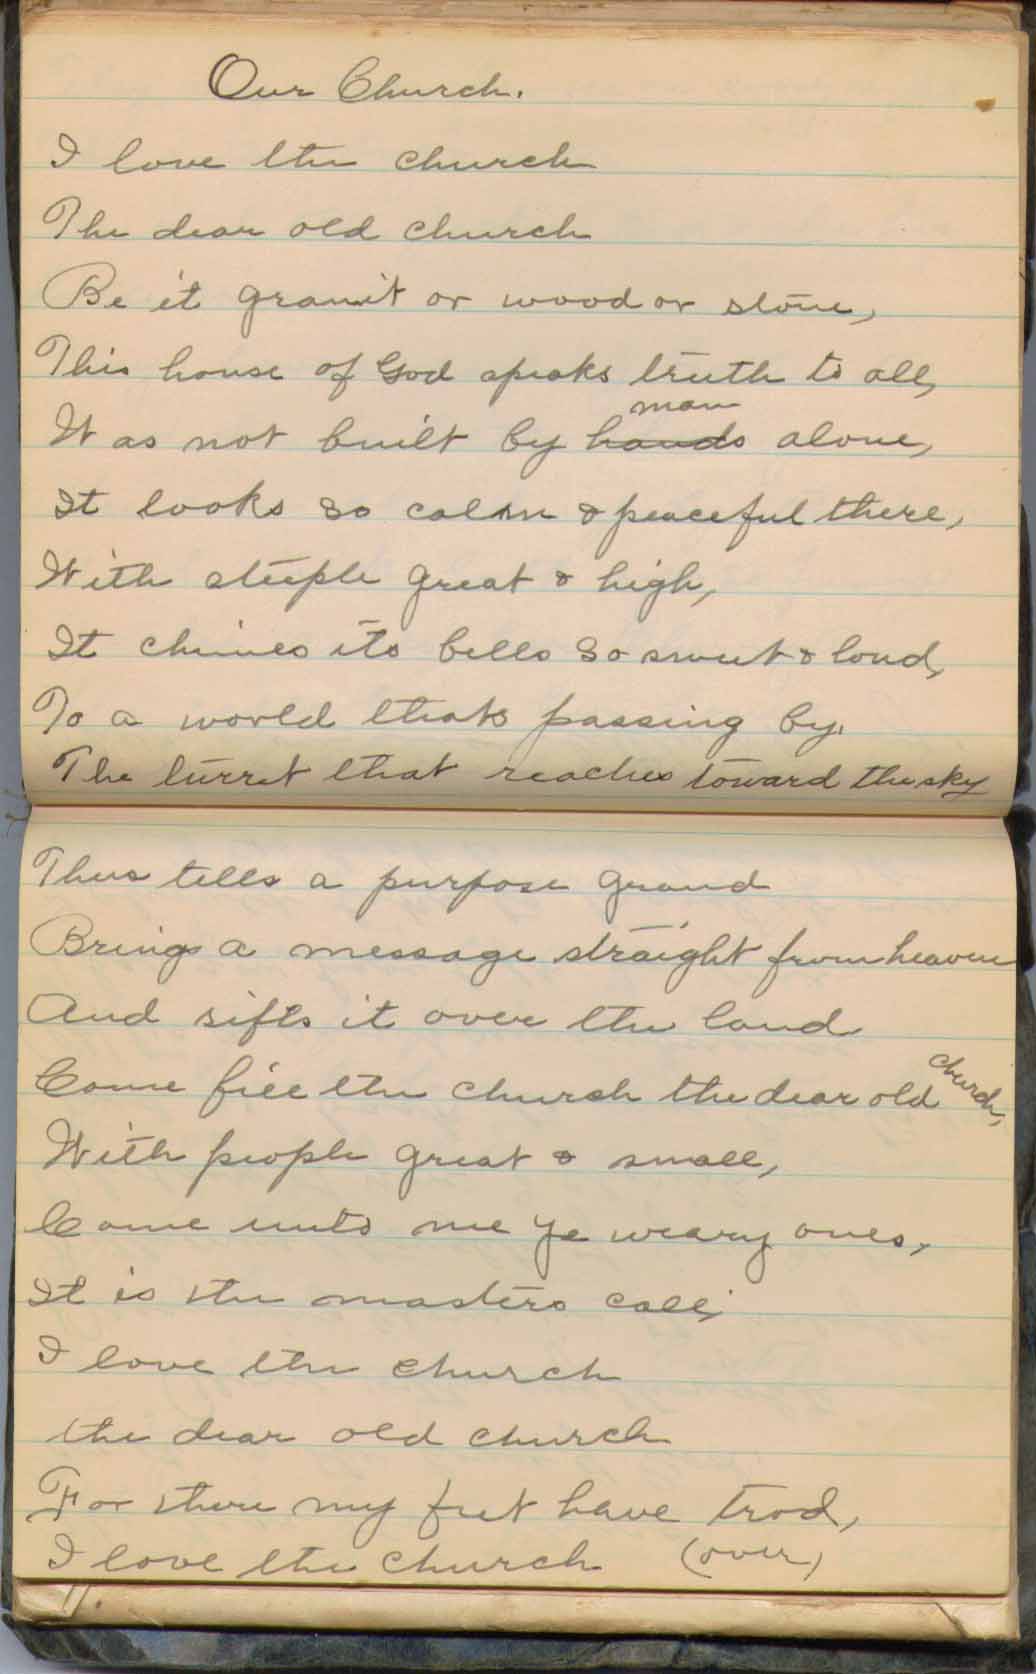 Our Church.
I love the church
The dear old church
Be it granit or wood or stone,
This house of God speaks truth to all,
It as not built by ~~hands~~ man alone,
It looks so calm & peaceful there,
With steeple great & high,
It chimes its bells so sweet & loud,
To a world thats passing by.
The turret that reaches toward the sky
Thus tells a purpose grand
Brings a message straight from heaven
And sifts it over the land
Come fill the church the dear old church,
With people great & small,
Come unto me ye weary ones,
It is the masters call,
I love the church
the dear old church
For there my feet have trod,
I love the church (over)